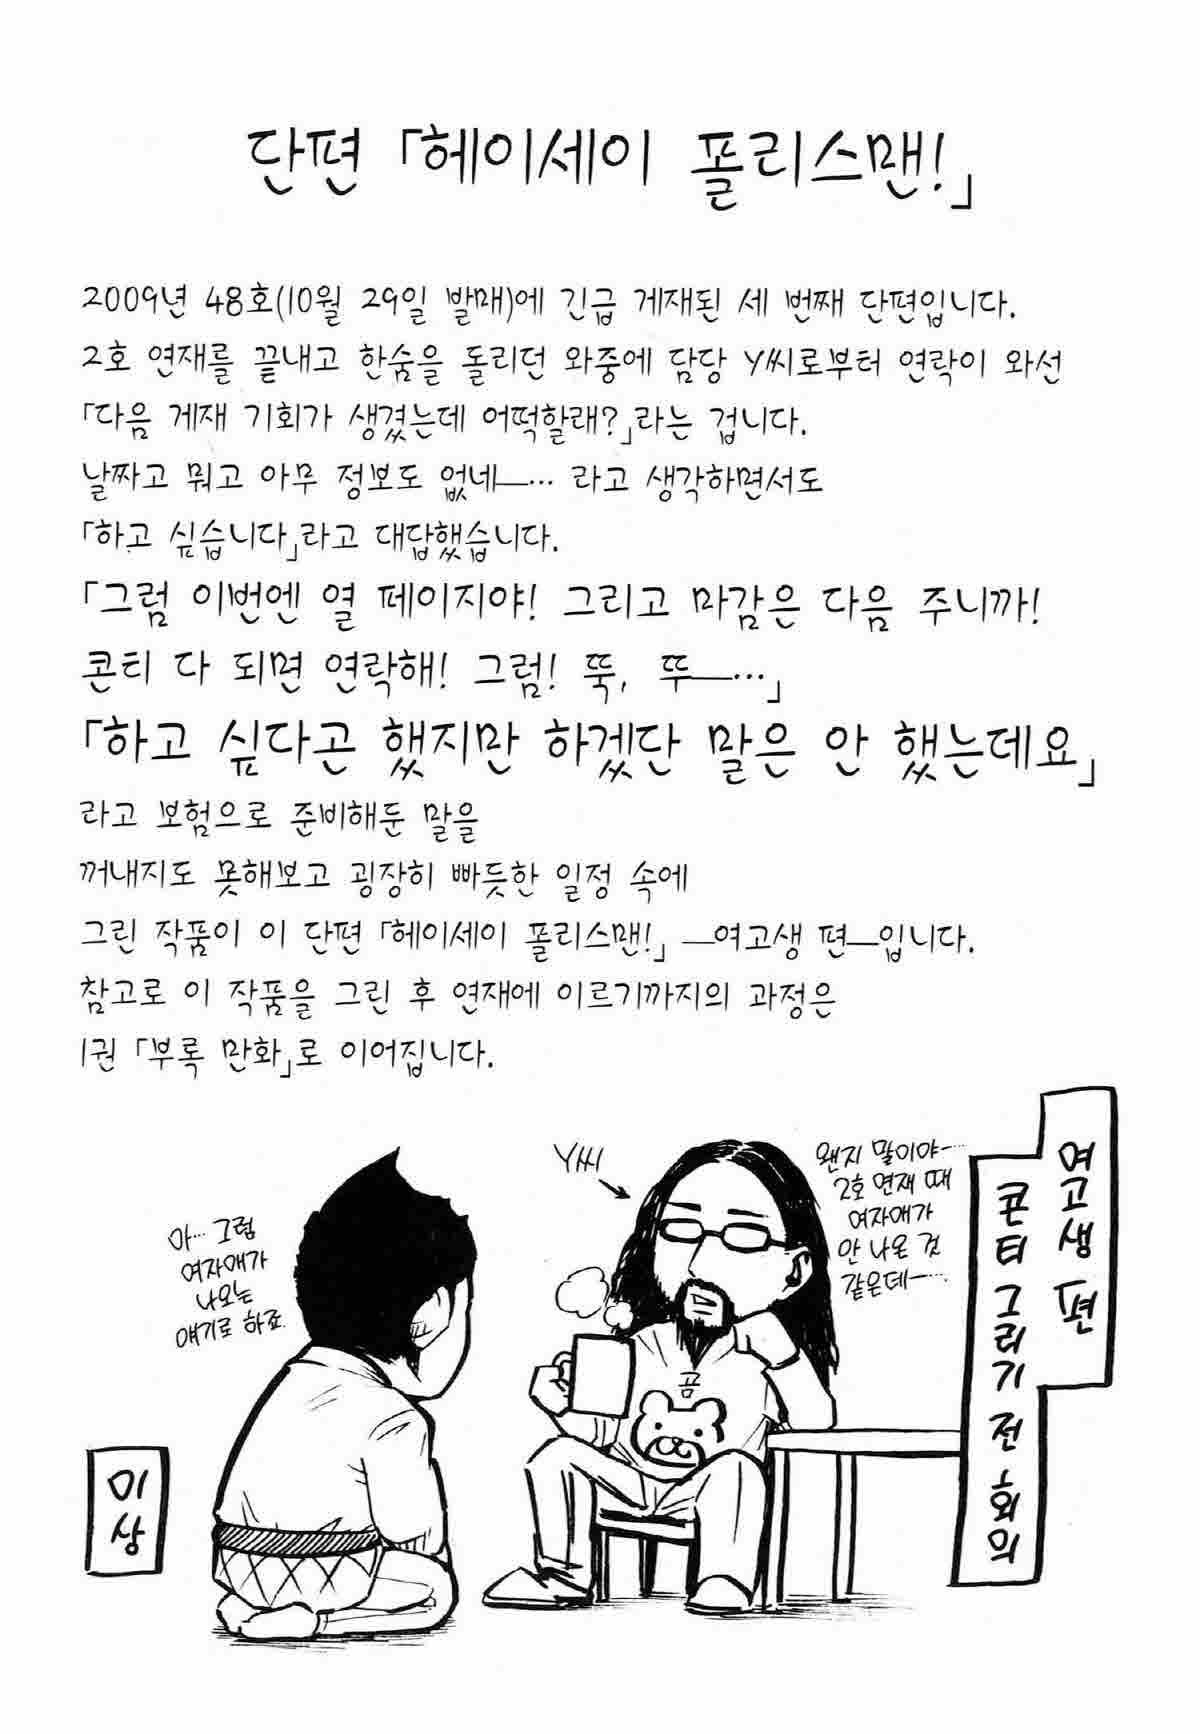 단편 「헤이세이 폴리스맨!」
2009년 48호(10월 29일 발매)에 긴급 게재된 세 번째 단편입니다.
2호 연재를 끝내고 한숨을 돌리던 와중에 담당 Y씨로부터 연락이 와선
「다음 게재 기회가 생겼는데 어떡할래?」라는 겁니다.
날짜고 뭐고 아무 정보도 없네—… 라고 생각하면서도
「하고 싶습니다」라고 대답했습니다.
「그럼 이번엔 열 페이지야! 그리고 마감은 다음 주니까!
콘티 다 되면 연락해! 그럼! 뚝, 뚜—…」
「하고 싶다곤 했지만 하겠단 말은 안 했는데요」
라고 보험으로 준비해둔 말을
꺼내지도 못해보고 굉장히 빠듯한 일정 속에
그린 작품이 이 단편 「헤이세이 폴리스맨!」 —여고생 편—입니다.
참고로 이 작품을 그린 후 연재에 이르기까지의 과정은
1권 「부록 만화」로 이어집니다.
여고생 편
콘티 그리기 전 회의
왠지 말이야—…
2호 연재 때
여자애가
안 나온 것
같은데—…
Y씨
곰
아… 그럼
여자애가
나오는
얘기로 하죠.
이상